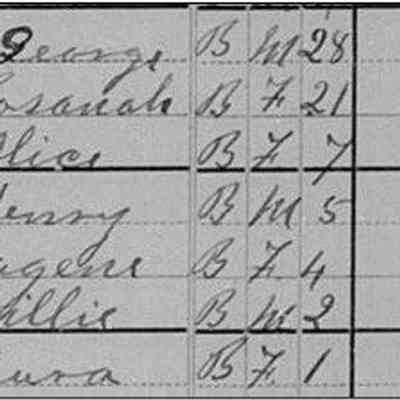 George B M 28
osanah B F 21
lice B F 7
enry B M 5
ugene B F 4
illie B M 2
ura B F 1